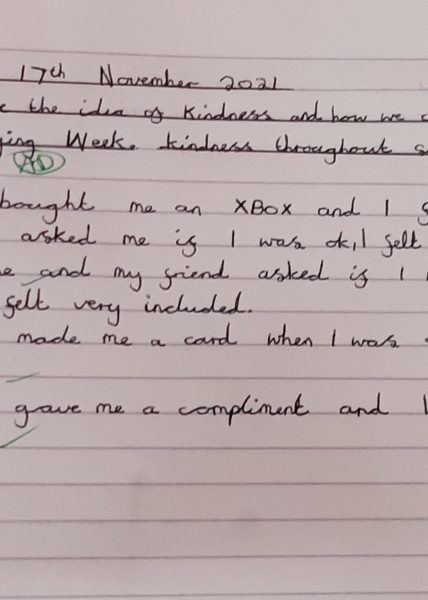 17th November 2021
the idea of Kindness and how we
Week. kindness throughout
AD
bought me an XBOX and I
asked me is I was ok, I felt
and my friend asked is I
felt very included.
made me a card when I was
gave me a compliment and I